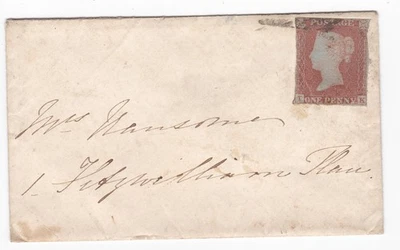 POSTAGE
ONE PENNY
Mrs Ransome
1 Fitzwilliam Place.